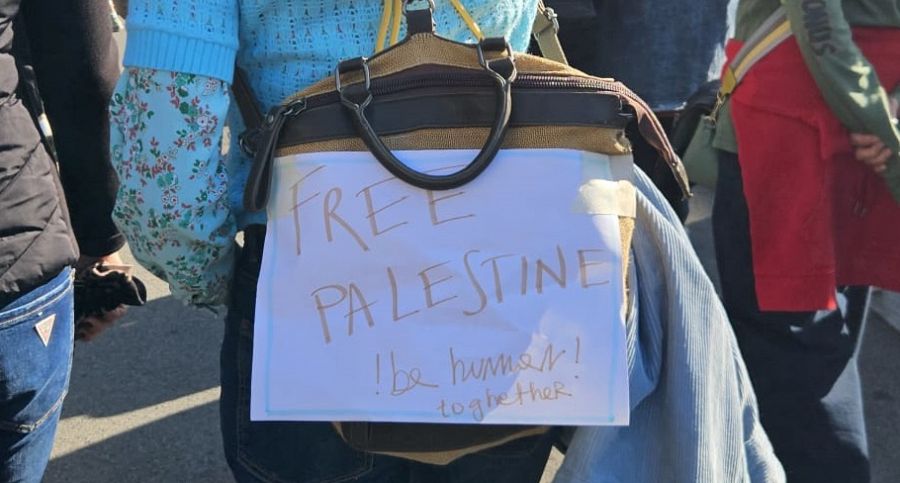 FREE
PALESTINE
!be humen!
toghether